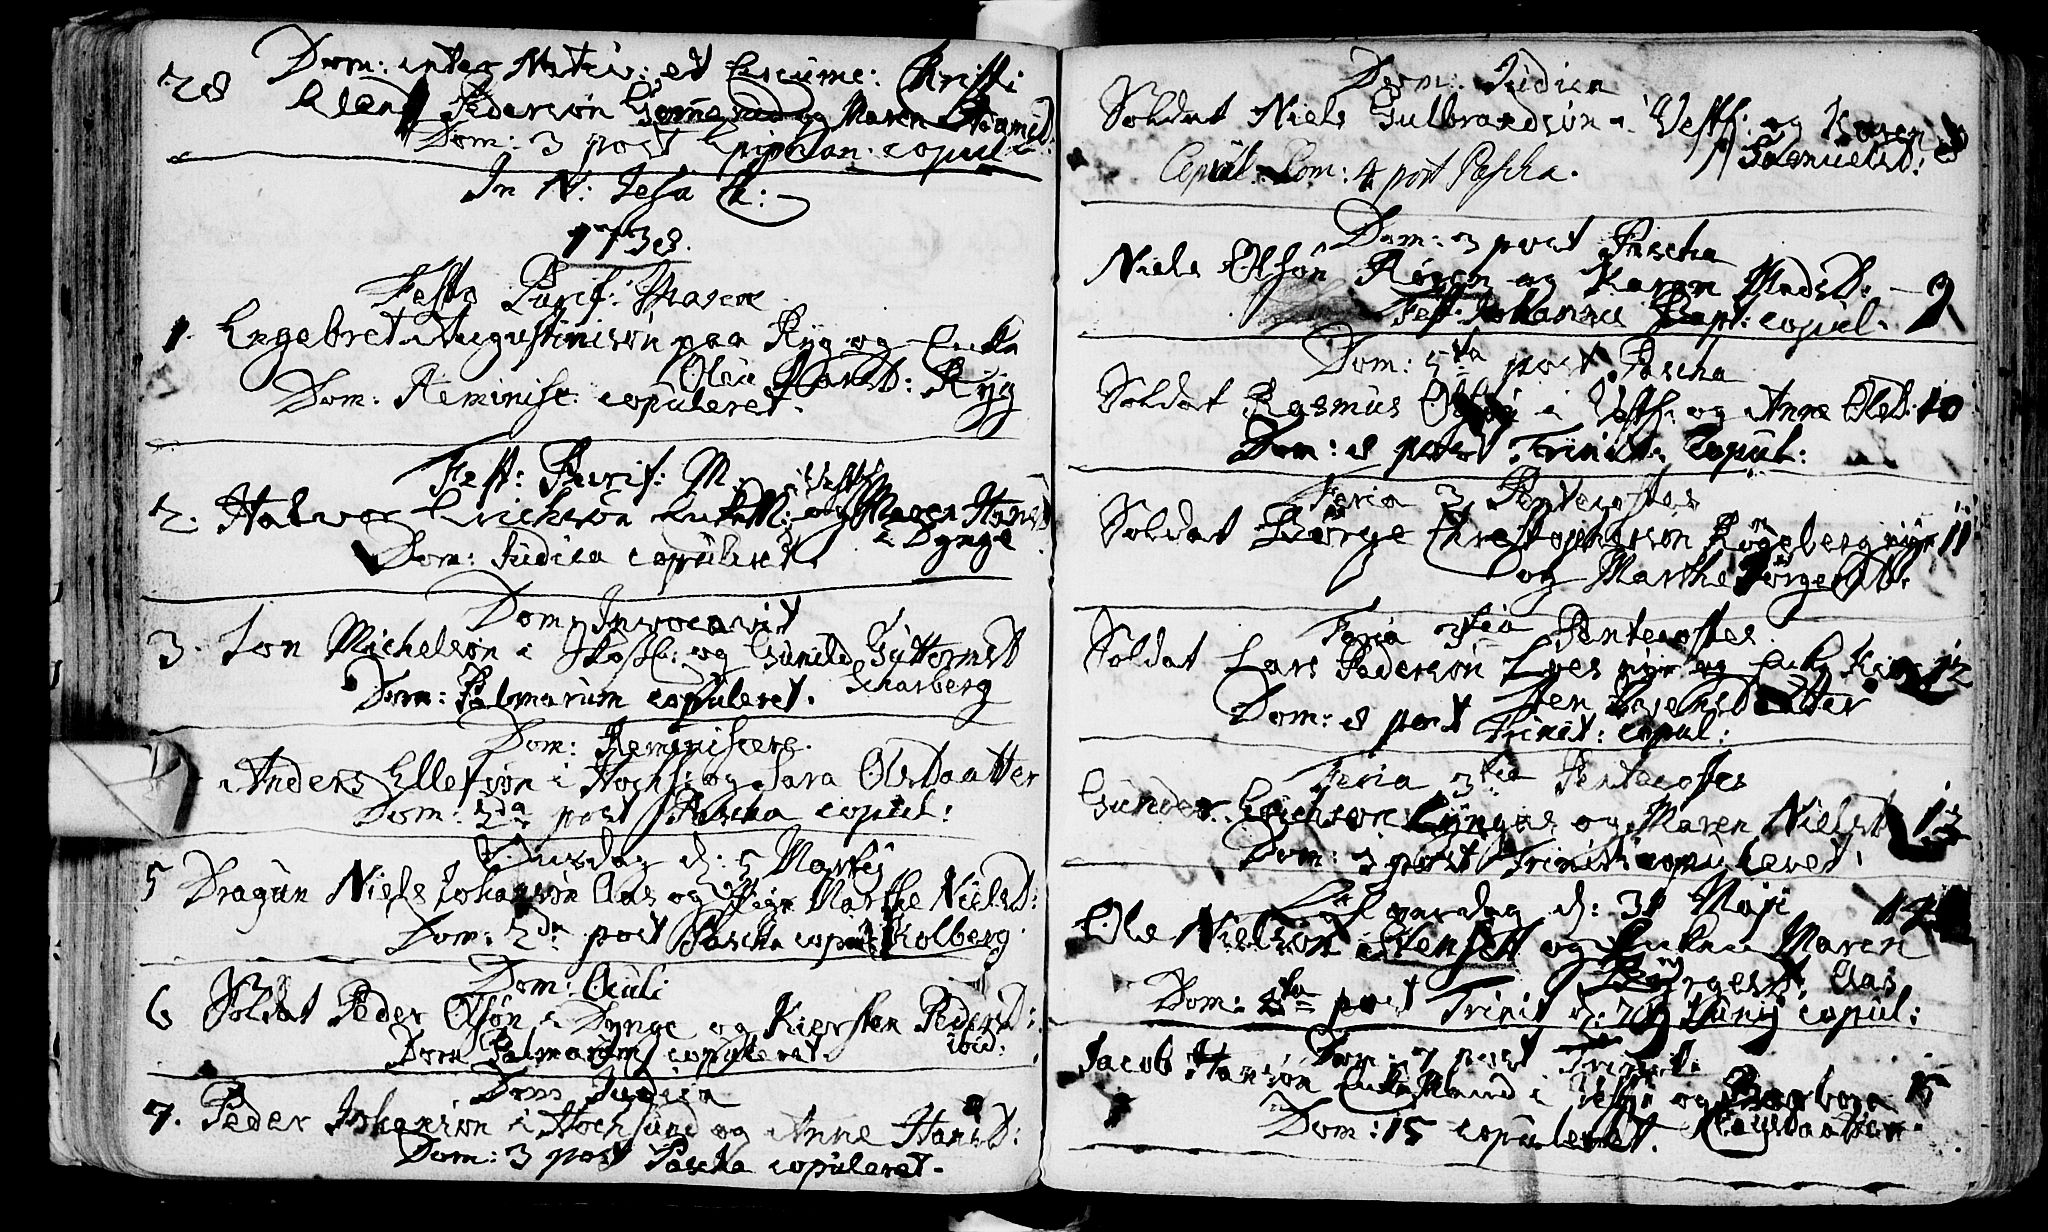 Dom: inter Nativ: et Circumc: Christi
28 Pedersøn og Maren
Dom: 3 post Epiphan: copul
In N: Jesu
1738.
Festo Purif: Mariæ
1. Engebret Augustinusøn paa Ryg og Encke
Olea Ryg
Dom: Reminisc: copuleret.
Fest: Purif: M.
2. Halvor Erichsøn og Maren Hansd
i Dynge
Dom: Judica copuleret.
Dom: Invocavit
3. Jon Michelsøn i og Gunild Guttormsd
Scharberg
Dom: Palmarum copuleret.
Dom: Reminiscere.
Anders Ellefsøn i Hochs: og Sara Olsdaatter
Dom: 2da post Pascha copul:
Tiisdag d: 5 Martij
5 Dragun Niels Johansøn Aas og Pige Marthe Nielsd:
Dom: 2da post Pascha copul: Kolberg
Dom: Oculi
6 Soldat Peder Olsøn i Dynge og Kiersten Pedersd:
ibid:
Dom Palmarum copuleret.
Dom Judica
7. Peder Johansøn i Hochsund og Anne Hansd:
Dom: 3 post Pascha copuleret.
Dom: Judica
Soldat Niels Gulbrandsøn i Vestf: og Karen 8
Samuelsd:
Copul: Dom: 4 post Pascha.
Dom: 3 post Pascha
Niels Olsøn Røren og Karen Madsd: 9
Fest: Johannis Bapt: copul.
Dom: 5ta post Pascha
Soldat Rasmus i Vestf: og Anne Olsd: 10
Dom: 8 post Trinit: Copul:
Feria 3 Pentecostes
Soldat Børge Christophersøn nÿe 11
og Marthe Jørgensd:
Feria 3tia Pentecostes
Soldat Lars Pedersøn Loes og Encke Kier 12
sten
Dom: 8 post Trinit: copul:
Feria 3tia Pentecostes
Gunder Erichsøn Lÿngaas og Maren Nielsd 13
Dom: 3 post Trinit: copuleret.
Løverdag d: 31 Maji
Ole Nielsøn og Encken Maren 14
Børgesd: Aas
Dom: post Trinit d: Junij copul:
Dom: 7 post Trinit.
Jacob Hansøn Enckemand i Vestf: og Barbora 15
Dom: 15 copuleret.